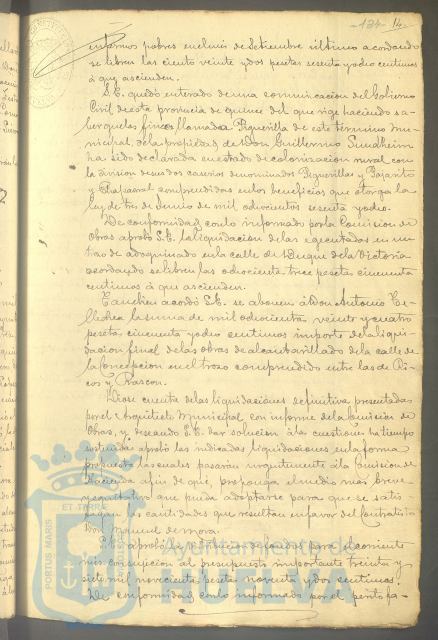 -124- 14.
enfermos pobres en el mes de Setiembre último acordando
se libren las ciento veinte y dos pesetas sesenta y ocho centimos
á que ascienden.
S.E. quedó enterado de una comunicacion del Gobierno
Civil de esta provincia de quince del que rige haciendo sa-
ber que la finca llamada Peguerilla de este término mu-
nicipal, de la propiedad de Don Guillermo Sundheim
ha sido declarada en estado de colonizacion rural con
la division de sus dos caserios denominados Peguerillas y Pajarito
y comprendidas en los beneficios que otorga la
ley de tres de Junio de mil ochocientos sesenta y ocho.
De conformidad con lo informado por la Comision de
Obras aprobó S.E. la liquidacion de las ejecutadas en un
trozo de adoquinado en la calle del Duque de la Victoria
acordando se libren las ochocientas trece pesetas cincuenta
centimos á que ascienden.
Tambien acordó S.E. se abonen á Don Antonio
la suma de mil ochocientas veinte y cuatro
pesetas cincuenta y ocho centimos importe de la liqui-
dacion final de las obras de alcantarillado de la calle de
la Concepcion en el trozo comprendido entre las de Ri-
cos y Rascon.
Diose cuenta de las liquidaciones definitivas presentadas
por el Arquitecto Municipal con informe de la Comision de
Obras, y deseando S.E. dar solucion á la cuestion ha tiempo
sostenida aprobó las indicadas liquidaciones en la forma
propuesta las cuales pasaran urgentemente á la Comision de
Hacienda á fin de que, proponga el medio mas breve
y equitativo que pueda adoptarse para que se satis-
fagan las cantidades que resultan en favor del Contratista
Don Manuel de Mora.
S.E. aprobó la corriente
mes con sujecion al presupuesto importante treinta y
siete mil novecientas pesetas noventa y dos centimos.
De conformidad con lo informado por el perito fa-
PORTUS MARIS
ET TERRE
Ayuntamiento de
HUELVA